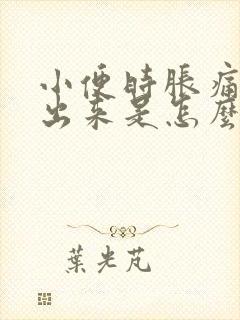 小便時脹痛
出来是怎麼
葉光芃